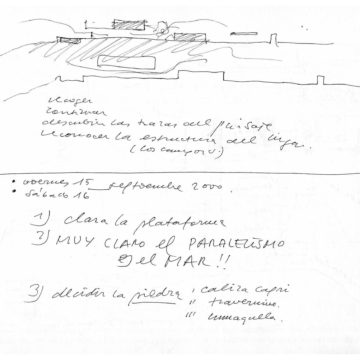 recoger
continuar
descubrir las trazas del paisaje
reconocer la estructura del lugar.
(los campos)
• viernes 15 septiembre 2000.
• sábado 16
1) clara la plataforma
2) MUY CLARO el PARALELISMO
el MAR!!
3) decidir la piedra, caliza capri
" travertino.
"' lumaquella.